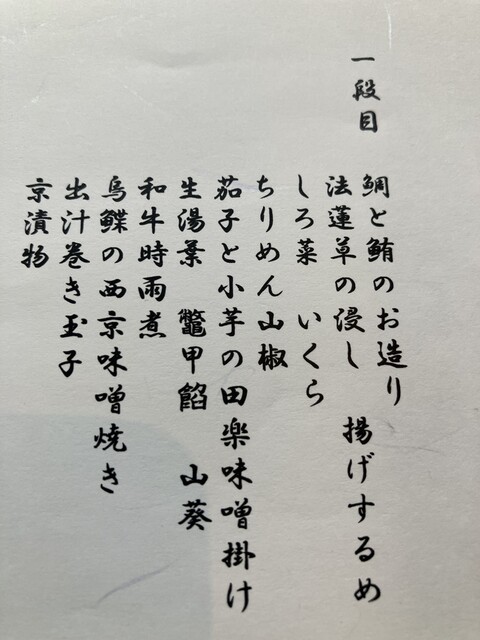 一段目
鯛と鮪のお造り
法蓮草の浸し　揚げするめ
しろ菜　いくら
ちりめん山椒
茄子と小芋の田楽味噌掛け
生湯葉　鼈甲餡　山葵
和牛時雨煮
烏鰈の西京味噌焼き
出汁巻き玉子
京漬物